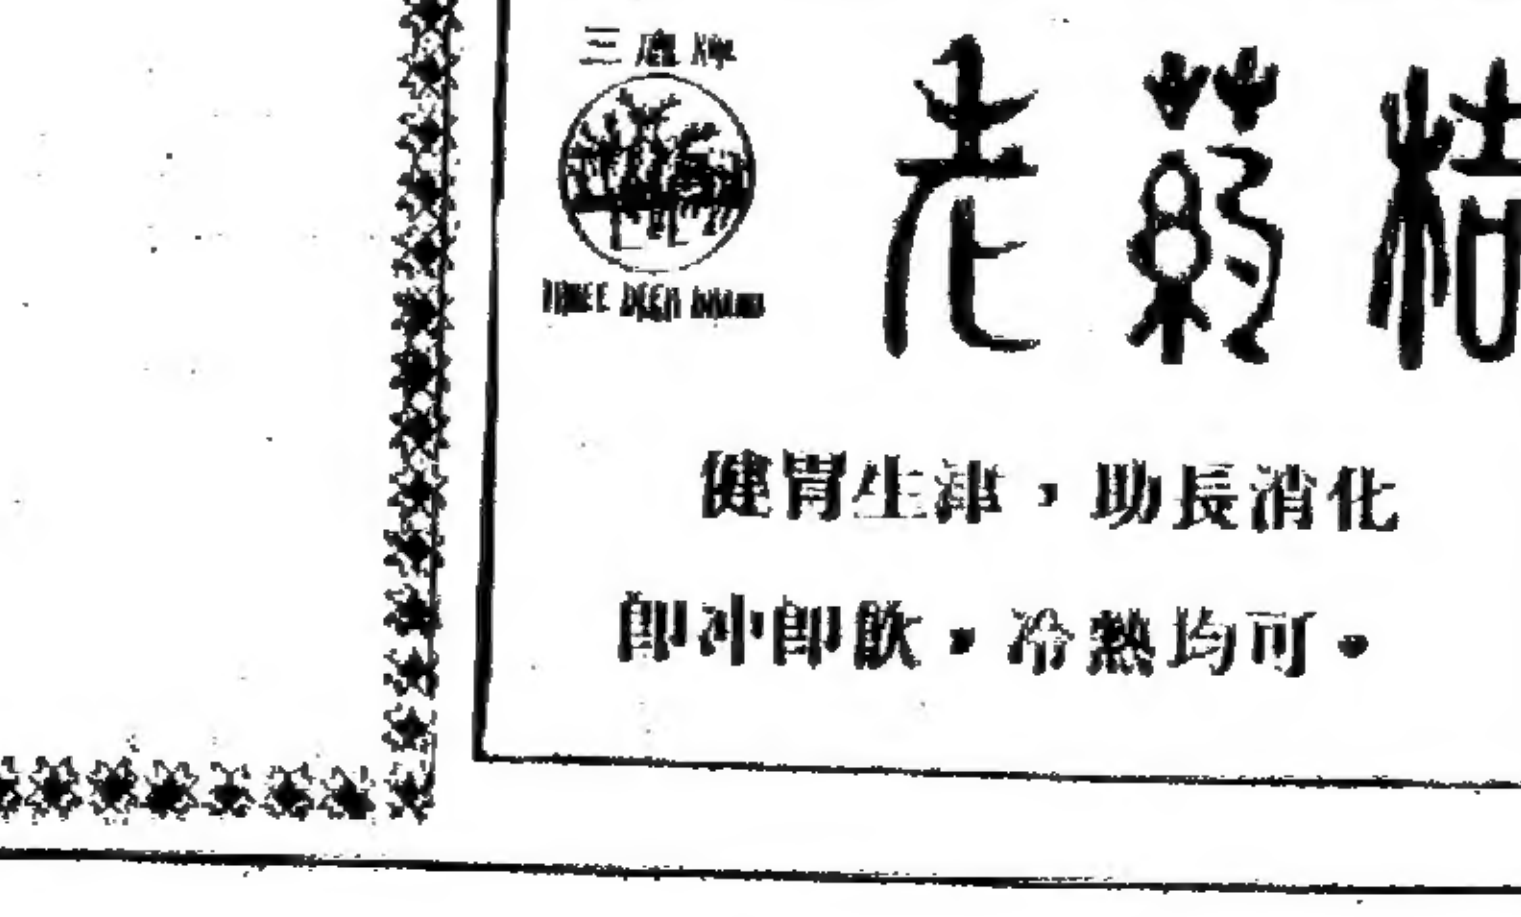 三鹿牌
THREE DEER BRAND
老藥桔
健胃生津，助長消化
即冲即飲。冷熱均可。